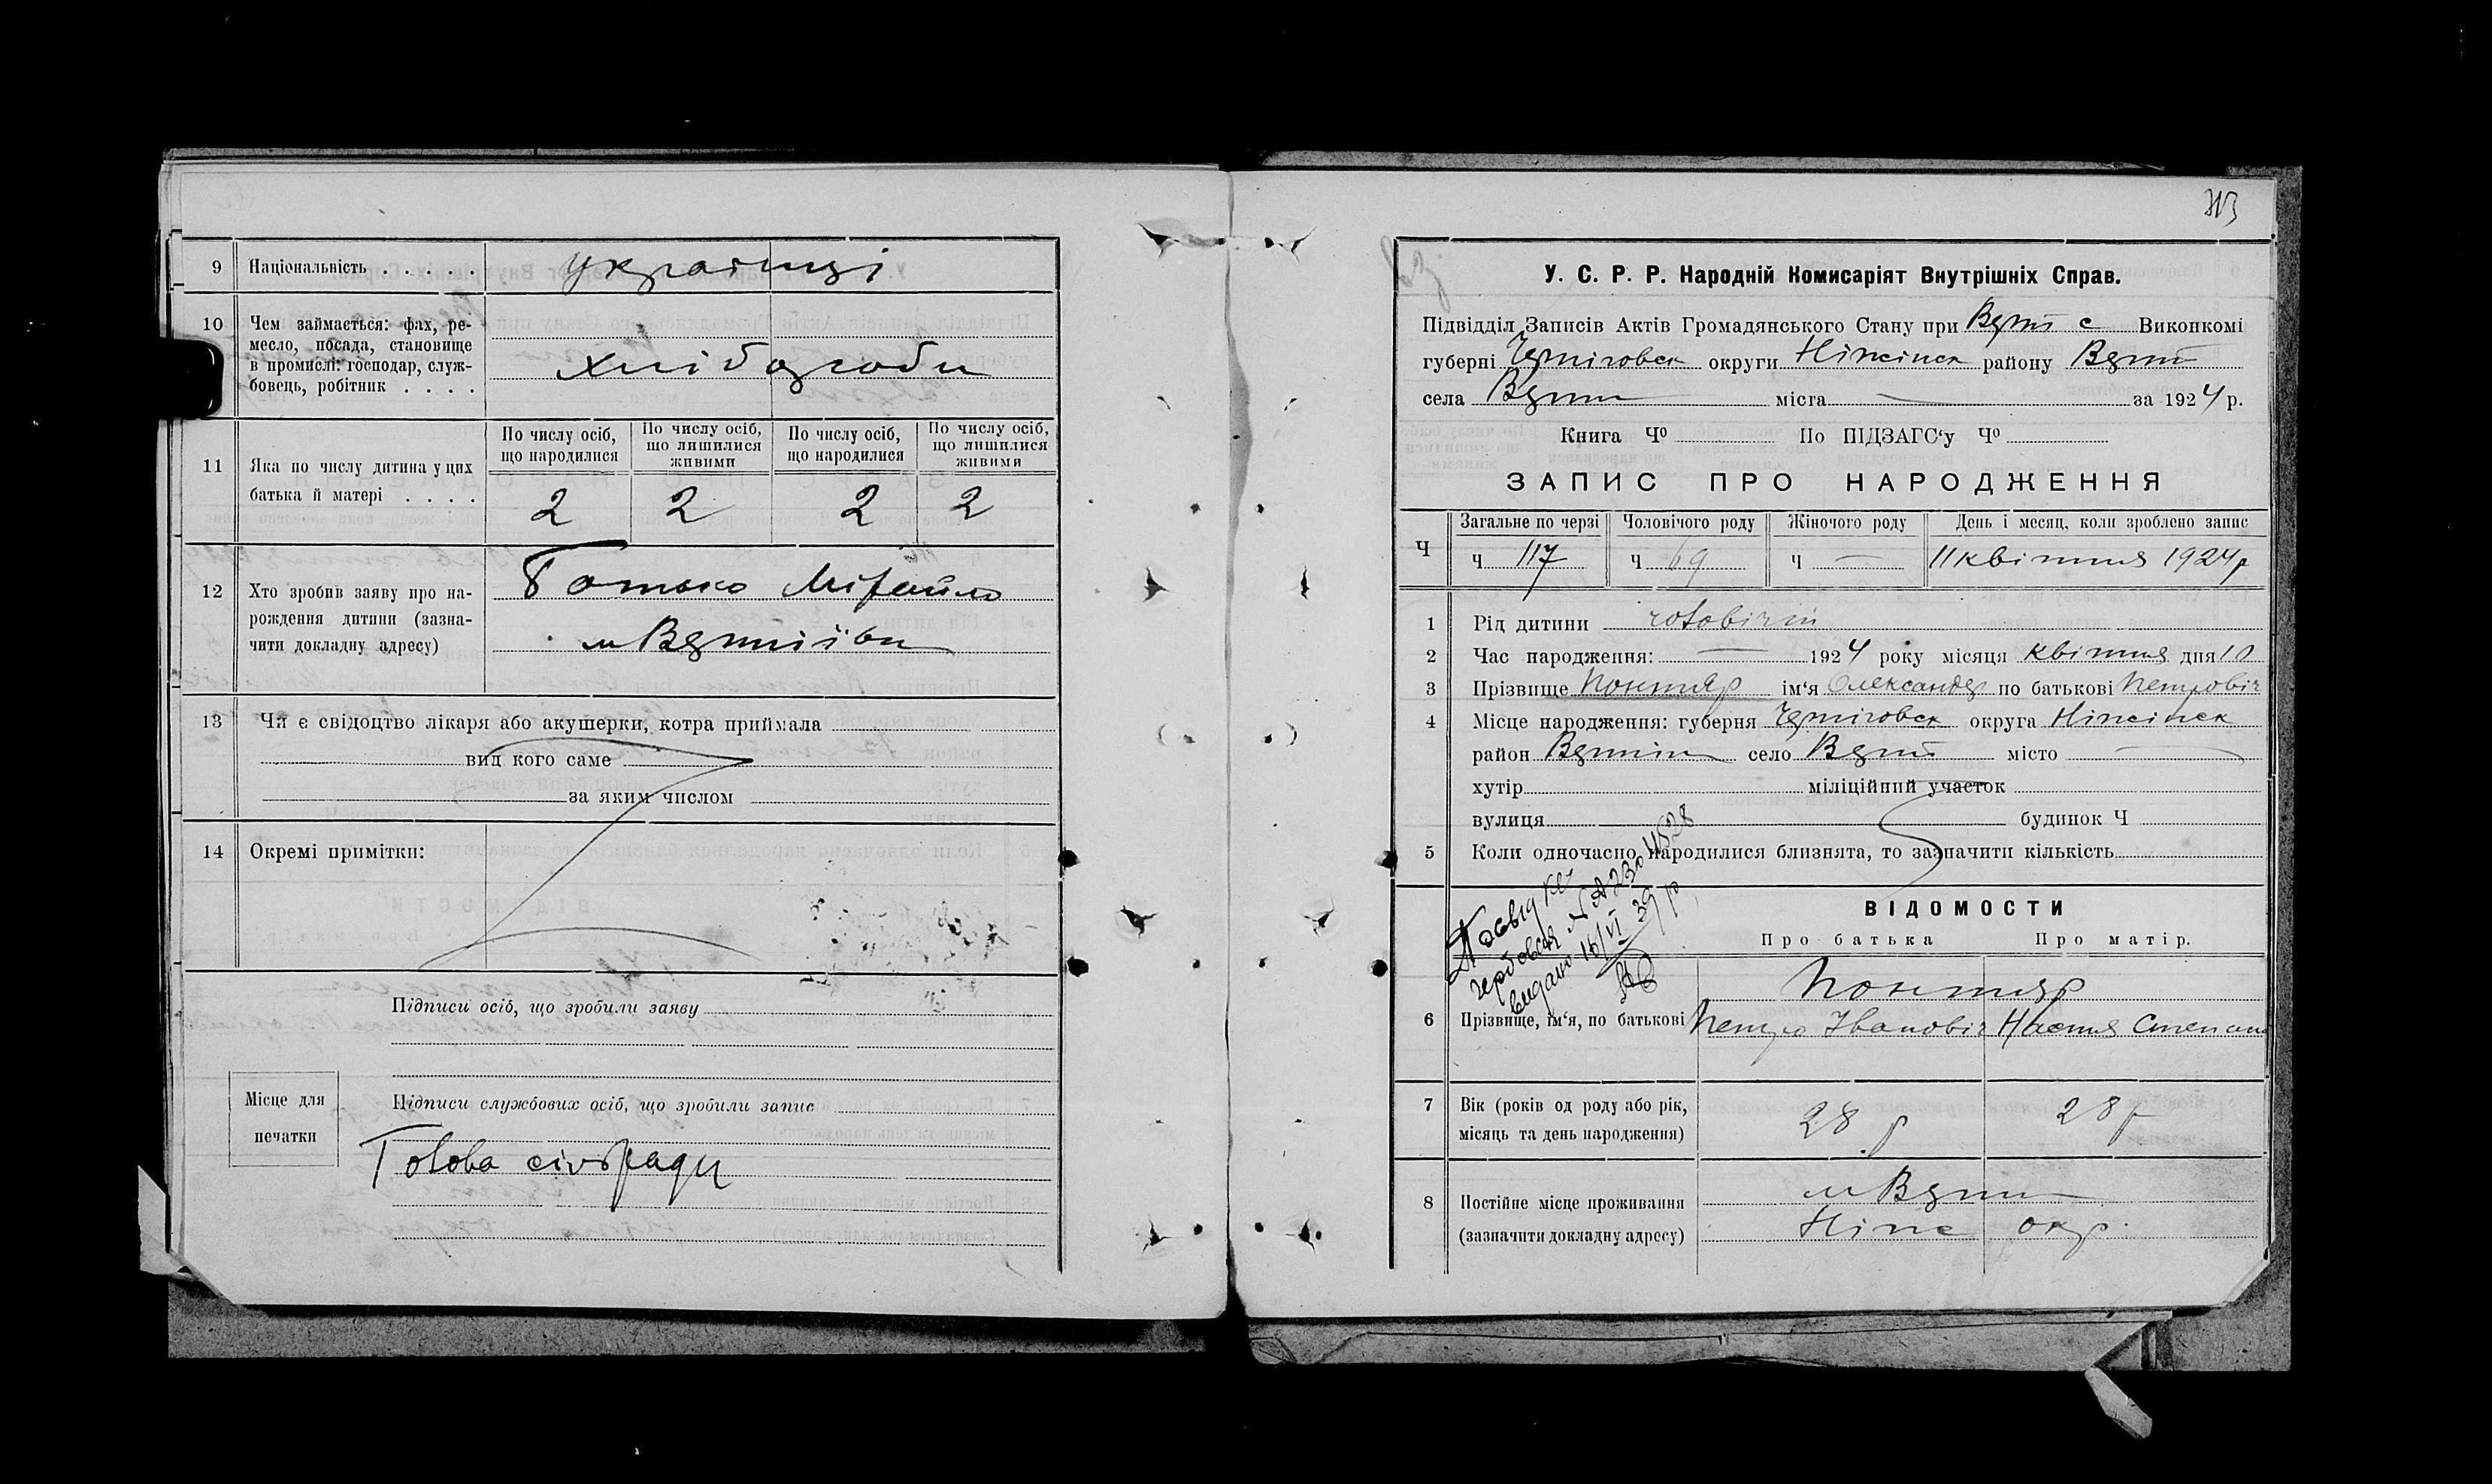 9 Національність . . . . . українці
10 Чем займається: фах, ре-
месло, посада, становище
в промислі: господар, служ-
бовець, робітник . . . . хлібороби
11 Яка по числу дитина у цих
батька й матері . . . .
По числу осіб, що народилися
По числу осіб, що лишилися живими
По числу осіб, що народилися
По числу осіб, що лишилися живими
2 2 2 2
12 Хто зробив заяву про на-
рождення дитини (зазна-
чити докладну адресу)
м
13 Чи є свідоцтво лікаря або акушерки, котра приймала
вид кого саме
за яким числом
14 Окремі примітки:
Підписи осіб, що зробили заяву
Місце для
печатки
Підписи службових осіб, що зробили запис
Голова сільради
313
У. С. Р. Р. Народній Комисаріят Внутрішніх Справ.
Підвідділ Записів Актів Громадянського Стану при Верт с Виконкомі
губерні Черніговск округи Ніжінск району Верт
села Верт міста — за 1924 р.
Книга Чº По ПІДЗАГС‘у Чº
ЗАПИС ПРО НАРОДЖЕННЯ
Загальне по черзі Чоловічого роду Жіночого роду День і месяц, коли зроблено запис
Ч ч 117 ч 69 ч — 11 квітня 1924 р
1 Рід дитини чоловічий
2 Час народження: — 1924 року місяця квітня дня 10
3 Прізвище ім‘я Олександр по батькові Петровіч
4 Місце народження: губерня Черніговск округа Ніжінск
район село Верт місто —
хутір міліційний участок
вулиця будинок Ч
5 Коли одночасно народилися близнята, то зазначити кількість
видано 16/VI 39 р.
ВІДОМОСТИ
Про батька Про матір.
6 Прізвище, ім‘я, по батькові
Петро Іванович Настя Степан
7 Вік (років од роду або рік,
місяць та день народження) 28 р 28 р
8 Постійне місце проживання
(зазначити докладну адресу)
м Верт
Ніж окр.